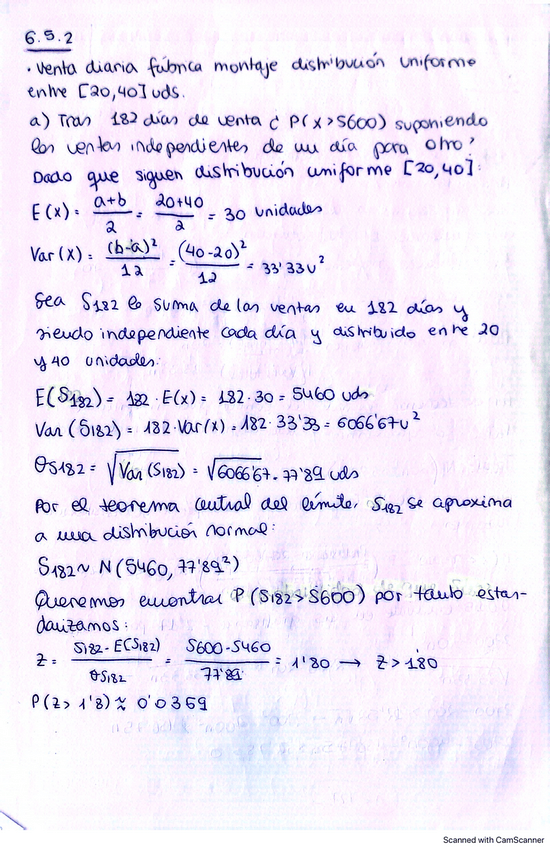 6.5.2
· Venta diaria fábrica montaje distribución uniforme
entre [20,40] uds.
a) Tras 182 días de venta ¿ P(x>5600) suponiendo
las ventas independientes de un día para otro?
Dado que siguen distribución uniforme [20,40]:
E(x) = a+b/2 = 20+40/2 = 30 unidades
Var(x) = (b-a)²/12 = (40-20)²/12 = 33'33u²
Sea S182 la suma de las ventas en 182 días y
siendo independiente cada día y distribuido entre 20
y 40 unidades:
E(S182) = 182 · E(x) = 182·30 = 5460 uds
Var(S182) = 182·Var(x) = 182·33'33 = 6066'67u²
σS182 = √Var(S182) = √6066'67 = 77'89 uds
Por el teorema central del límite, S182 se aproxima
a una distribución normal:
S182 ~ N(5460, 77'89²)
Queremos encontrar P(S182>5600) por tanto estan-
darizamos:
Z = S182-E(S182)/σS182 = 5600-5460/77'89 = 1'80 → Z > 1'80
P(Z> 1'8) ≈ 0'0359
Scanned with CamScanner